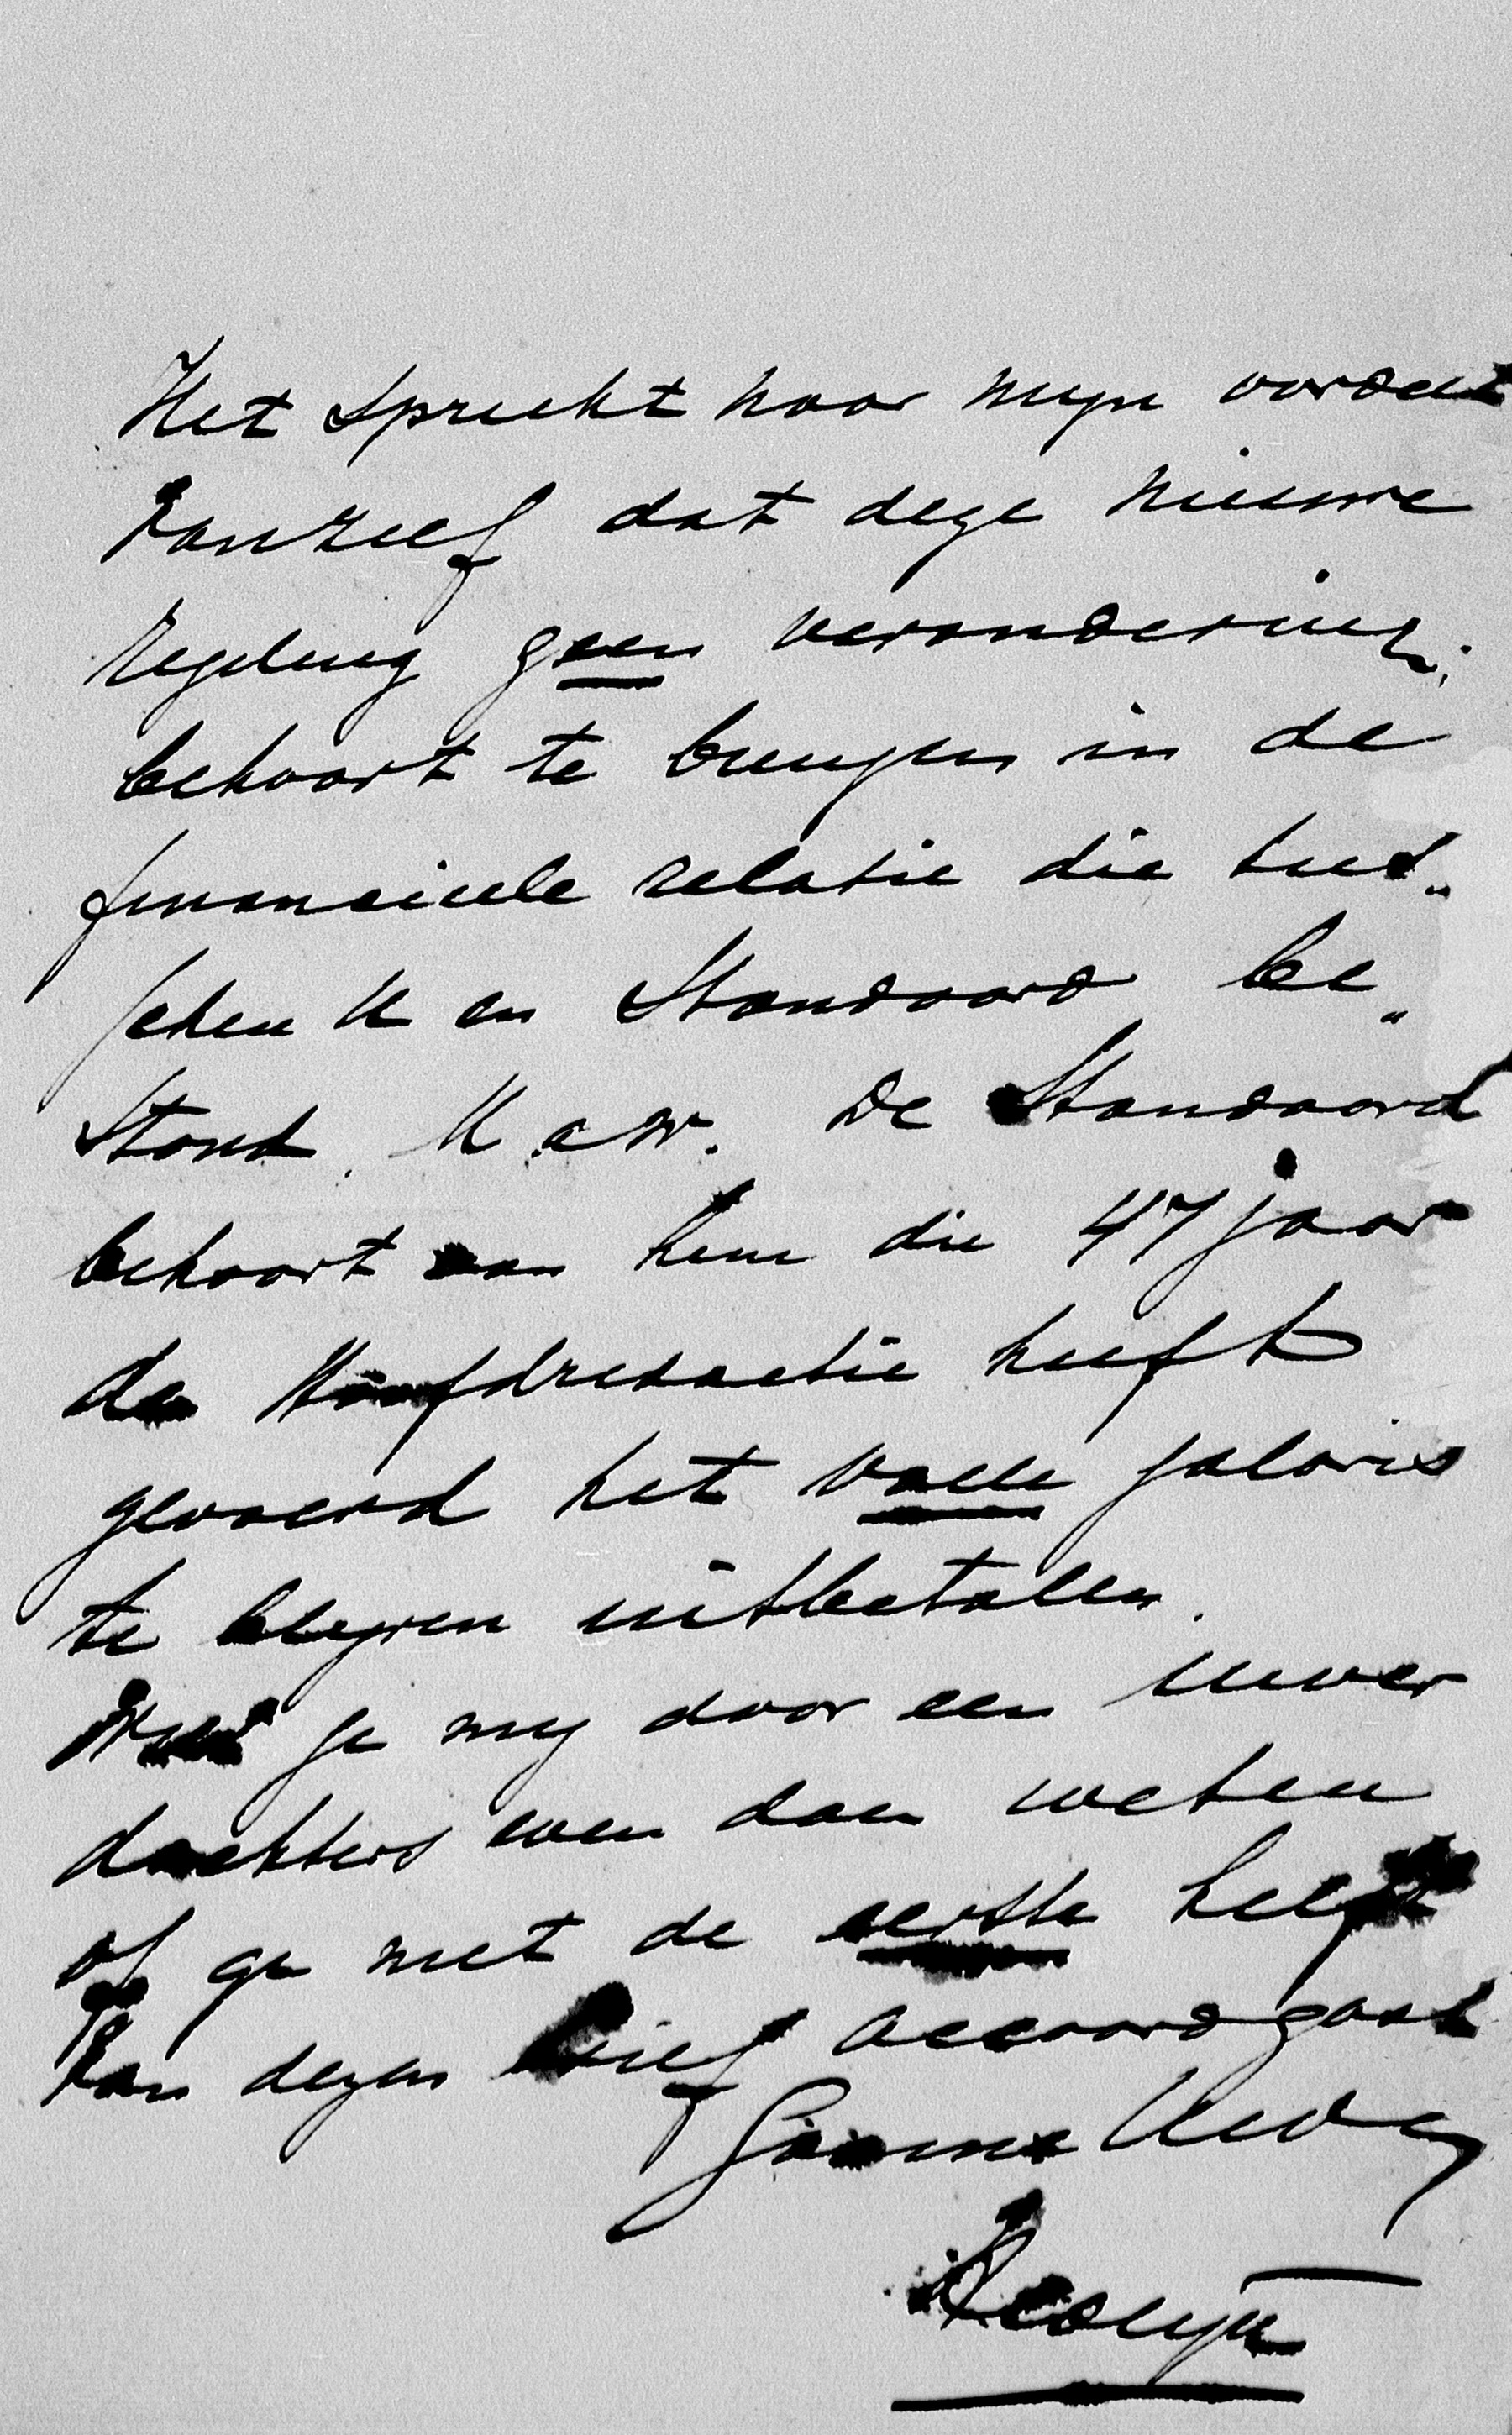 Het spreekt naar mijn oordeel
vanzelf dat deze nieuwe
regeling geen verandering
behoort te brengen in de
financieele relatie die tus„
schen U en Standaard be„
stond. M.a.w. De Standaard
behoort aan hem die 47 jaar
de Hoofdredactie heeft
gevoerd het volle salaris
te blijven uitbetalen.
Wilt je mij door een uwer
dochters even doen weten
of ge met de eerste helft
van dezen brief accoord gaat
Gaarne Uw
Colijn